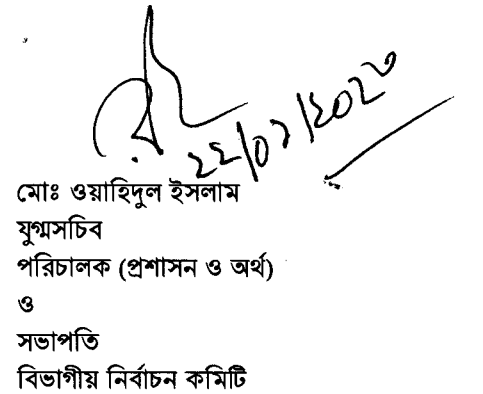 মোঃ ওয়াহিদুল ইসলাম
যুগ্মসচিব
পরিচালক (প্রশাসন ও অর্থ)
ও
সভাপতি
বিভাগীয় নির্বাচন কমিটি